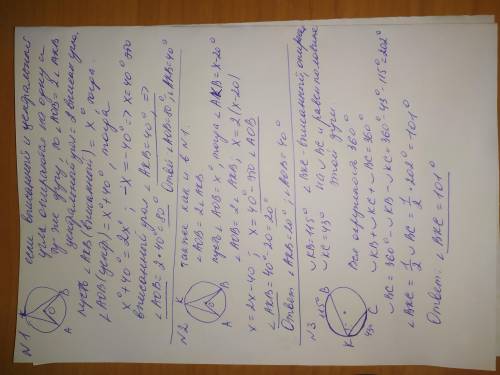 N1 если вписанный и центральный
угла опираются на одну и
ту же дугу, то ∠AOB = 2∠AKB
центральный угол = 2 впис. угла.
пусть ∠AKB (вписанный) = x° тогда
∠AOB (центр) = x°+40°, тогда
x°+40° = 2x°; -x = -40° => x = 40° это
вписанный угол ∠AKB = 40° =>
∠AOB = 2·40° = 80°
Ответ ∠AOB = 80°; ∠AKB = 40°
K
O
A
B
N2 также как и в N1.
∠AOB = 2∠AKB
пусть ∠AOB = x°, тогда ∠AKB = x-20°
∠AOB = 2∠AKB; x = 2(x-20)
x = 2x-40; x = 40° это ∠AOB
∠AKB = 40°-20 = 20°
Ответ: ∠AKB = 20°; ∠AOB = 40°
K
O
A
B
N3 ◡KB = 115° ∠BKC - вписанный, опирается
◡KC = 43° на ◡BC и равен половине
этой дуги.
Вся окружность 360°
◡KB + ◡KC + ◡BC = 360°
◡BC = 360° - ◡KB - ◡KC = 360° - 43° - 115° = 202°
∠BKC = 1/2 ◡BC = 1/2 · 202° = 101°
Ответ: ∠BKC = 101°
115°
B
K
43°
C